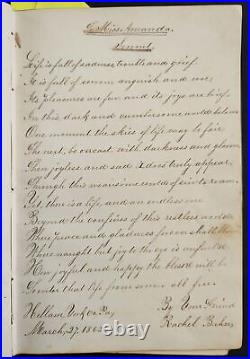 To Miss Amanda.
Sonnet.
Life is full of sadness, trouble and grief
It is full of sorrow anguish and woe,
Its pleasures are few and its joys are brief
In this dark and cumbersome world below
One moment the skies of life may be fair
The next, be overcast with darkness and gloom
Then joyless and sad it does truly appear,
Through this wearisome world of sin to roam.
Yet there is a life, and an endless one
Beyond the confines of this restless world
Where peace and gladness forever shall
Where naught but joy to the eye is unfurled
How joyful and happy the blessed will be
In that life from sorrow all free.
By Your Friend
Rachel
William York Co Pa,
March, 27.